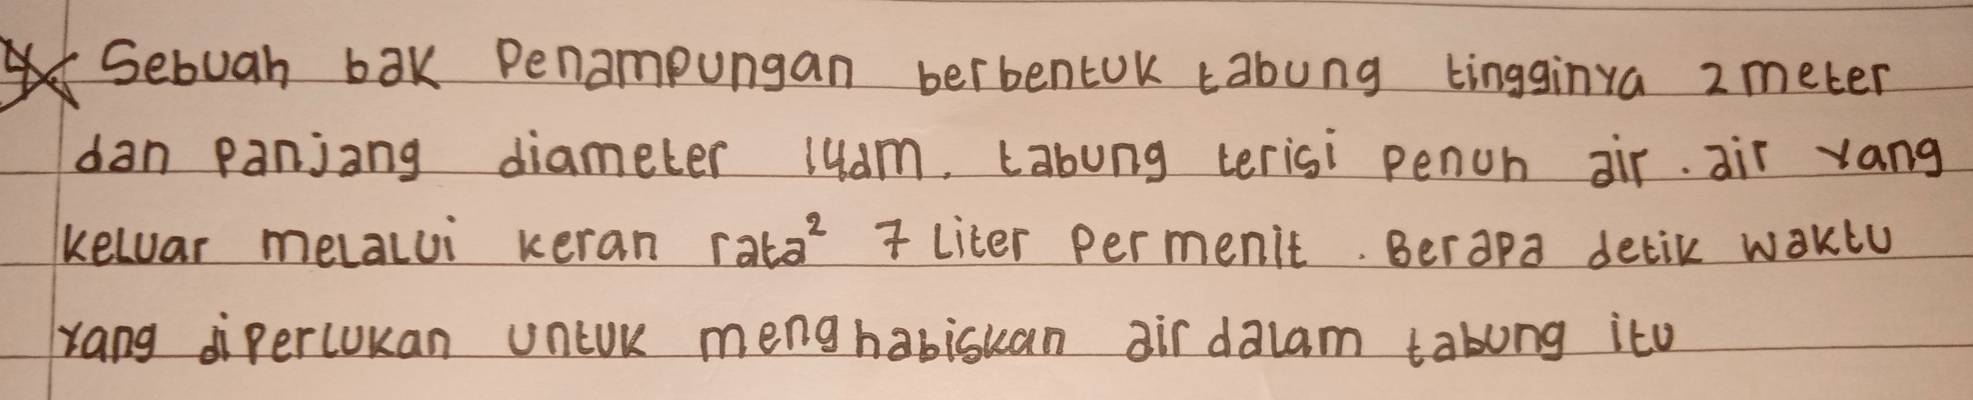 4 Sebuah bak Penampungan berbentuk tabung tingginya 2 meter
dan Panjang diameter 14dm. tabung terisi Penuh air. air yang
keluar melalui keran rata² 7 Liter Per menit. Berapa detik waktu
yang diperlukan untuk menghabiskan air dalam tabung itu